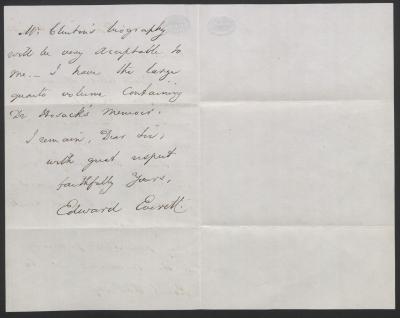 Mr. Clinton's biography
will be very acceptable to
me. – I have the large
quarto volume containing
Dr Hosack's Memoir.
I remain, Dear Sir,
with great respect
faithfully Yours,
Edward Everett.